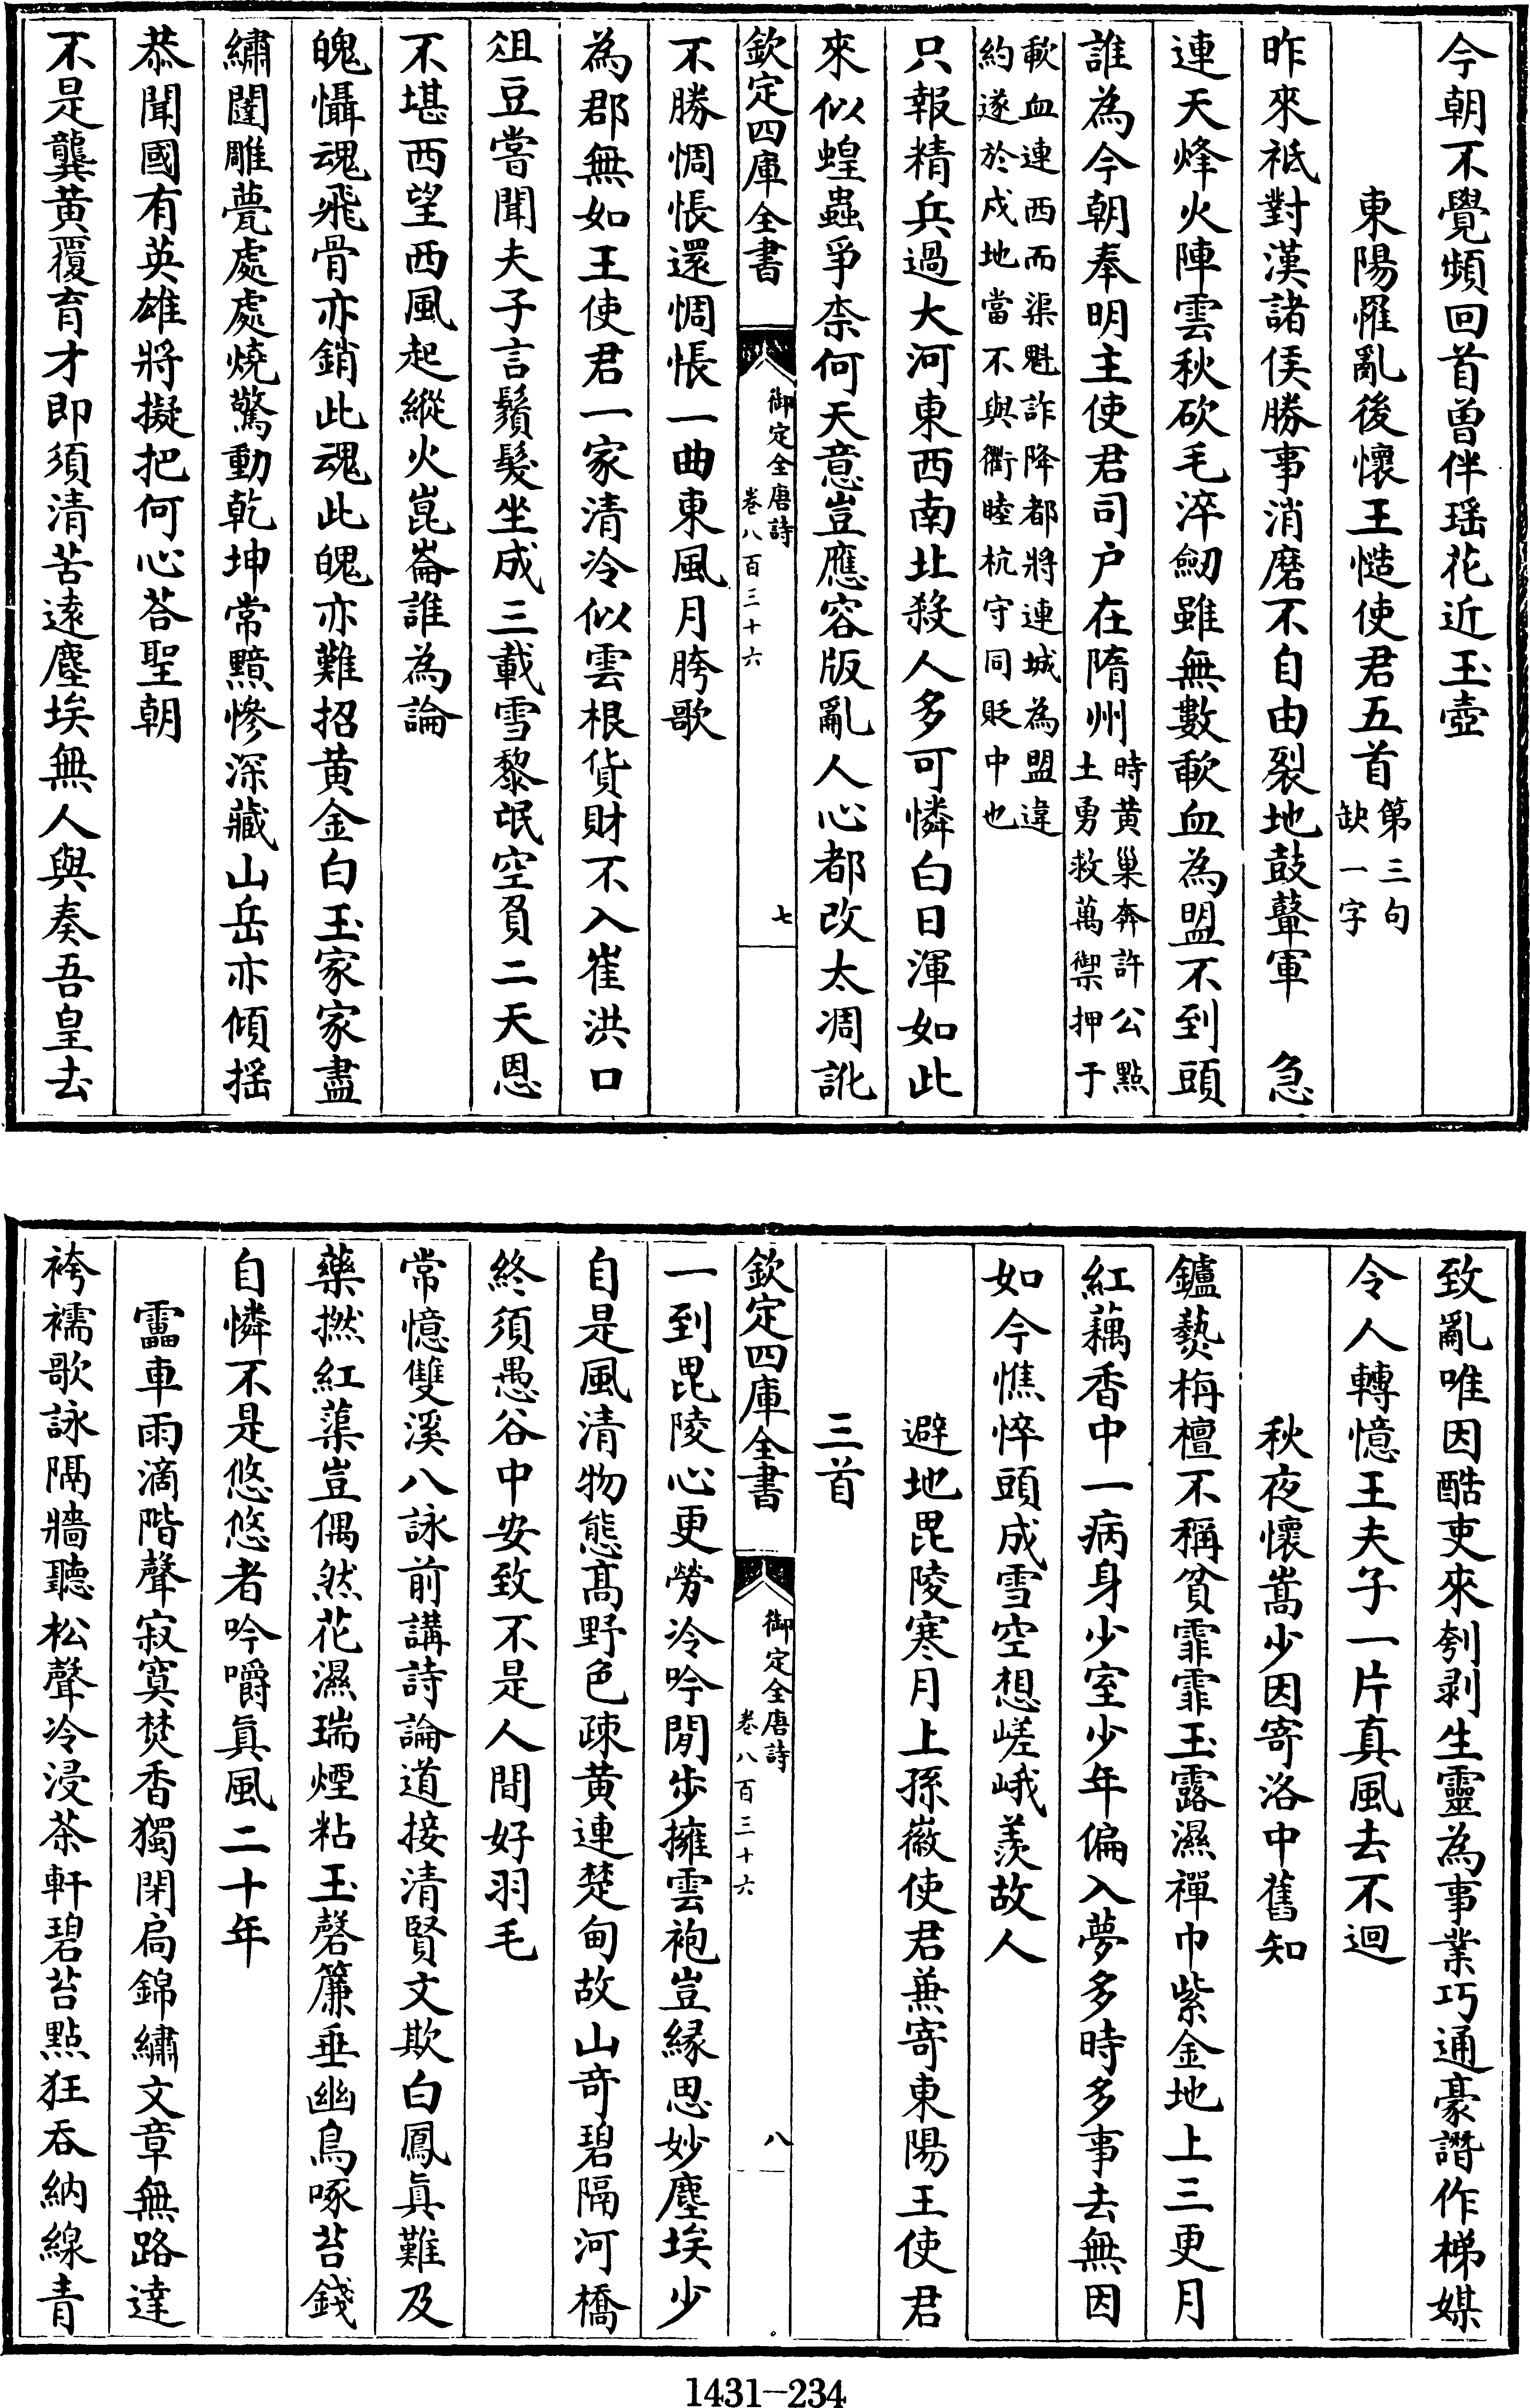 今朝不覺頻回首曽伴瑶花近玉壺
東陽罹亂後懷王慥使君五首第三句
缺一字
昨來祇對漢諸侯勝事消磨不自由裂地鼓鼙軍　急
連天烽火陣雲秋砍毛淬劒雖無數歃血為盟不到頭
誰為今朝奉明主使君司户在隋州時黄巢奔許公點
土勇救萬禦押于
歃血連西而渠魁詐降都將連城為盟違
約遂於戍地當不與衢睦杭守同貶中也
只報精兵過大河東西南北殺人多可憐白日渾如此
來似蝗蟲爭柰何天意豈應容版亂人心都改太凋訛
欽定四庫全書
御定全唐詩
卷八百三十六
七
不勝惆悵還惆悵一曲東風月胯歌
為郡無如王使君一家清冷似雲根貨財不入崔洪口
俎豆嘗聞夫子言鬚髮坐成三載雪黎氓空負二天恩
不堪西望西風起縱火崑崙誰為論
魄懾魂飛骨亦銷此魂此魄亦難招黄金白玉家家盡
繡闥雕甍處處燒驚動乾坤常黯慘深藏山岳亦傾摇
恭聞國有英雄將擬把何心荅聖朝
不是龔黄覆育才即須清苦遠塵埃無人與奏吾皇去
致亂唯因酷吏來刳剥生靈為事業巧通豪譖作梯媒
令人轉憶王夫子一片真風去不迴
秋夜懷嵩少因寄洛中舊知
鑪爇栴檀不稱貧霏霏玉露濕禪巾紫金地上三更月
紅藕香中一病身少室少年偏入夢多時多事去無因
如今憔悴頭成雪空想嵯峨羨故人
避地毘陵寒月上孫徽使君兼寄東陽王使君
三首
欽定四庫全書
御定全唐詩
卷八百三十六
八
一到毘陵心更勞冷吟閒步擁雲袍豈緣思妙塵埃少
自是風清物態髙野色疎黄連楚甸故山奇碧隔河橋
終須愚谷中安致不是人間好羽毛
常憶雙溪八詠前講詩論道接清賢文欺白鳳真難及
藥撚紅蕖豈偶然花濕瑞煙粘玉磬簾垂幽鳥啄苔錢
自憐不是悠悠者吟嚼真風二十年
靁車雨滴階聲寂寞焚香獨閉扃錦繡文章無路達
袴襦歌詠隔牆聽松聲冷浸茶軒碧苔點狂吞納線青
1431-234